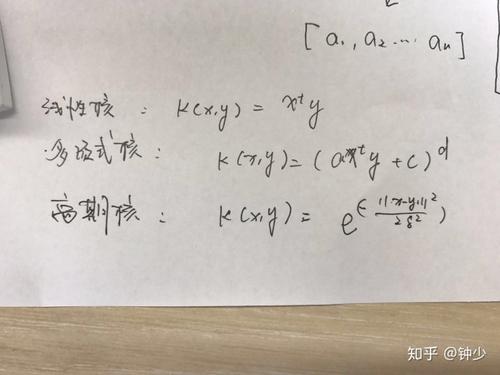 [a₁, a₂ ... aₙ]
线性核： K(x,y) = xᵗy
多项式核： K(x,y) = (axᵗy + c)ᵈ
高期核： K(x,y) = e^(-||x-y||²/2δ²)
知乎 @钟少